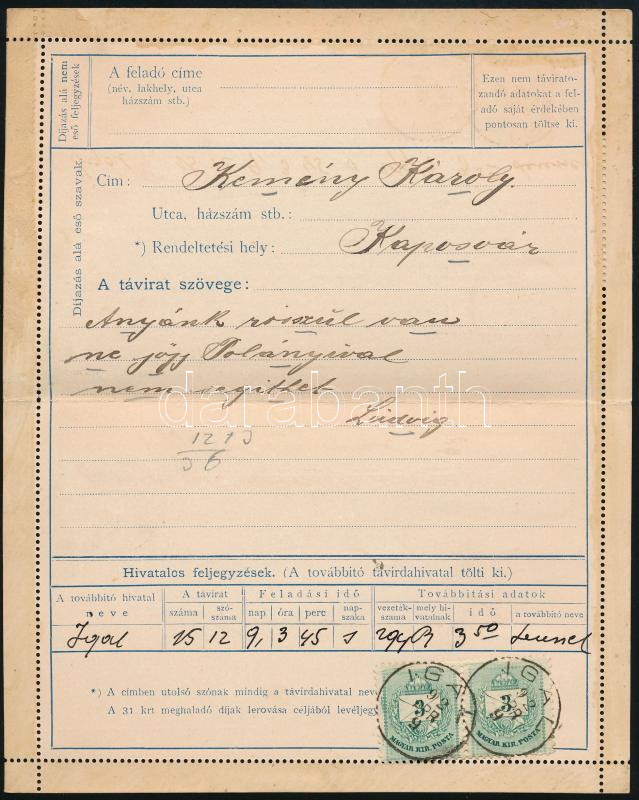 Díjazás alá nem eső feljegyzések
A feladó címe
(név, lakhely, utca
házszám stb.)
Ezen nem távirato-
zandó adatokat a fel-
adó saját érdekében
pontosan töltse ki.
Díjazás alá eső szavak.
Cim: Kemény Károly.
Utca, házszám stb.:
*) Rendeltetési hely: Kaposvár
A távirat szövege:
Anyánk rosszúl van
ne jöjj Polányival
nem segithet
Ludvig
darabanth
Hivatalos feljegyzések. (A továbbitó távirdahivatal tölti ki.)
A továbbitó hivatal neve
A távirat
száma
szó-száma
Feladási idő
nap
óra
perc
nap-szaka
Továbbitási adatok
vezeték-száma
mely hi-vatalnak
idő
a továbbitó neve
Igal 15 12 9 3 45 3 50
*) A címben utolsó szónak mindig a távirdahivatal neve
A 31 krt meghaladó díjak lerovása céljából levéljegy
3 MAGYAR KIR. POSTA
3 MAGYAR KIR. POSTA
IGAL
IGAL